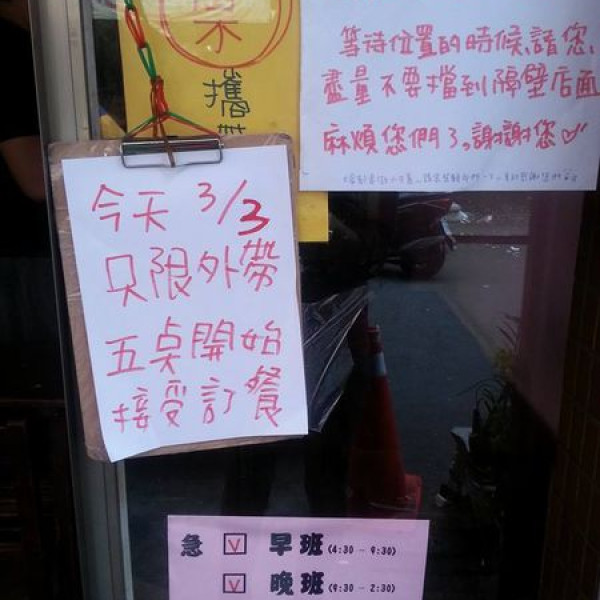 禁
攜帶
等待位置的時候,請您
盡量不要擋到隔壁店面
麻煩您們了,謝謝您♡
今天 3/3
只限外帶
五桌開始
接受訂餐
急 ☑ 早班(4:30 - 9:30)
☑ 晚班(9:30 - 2:30)